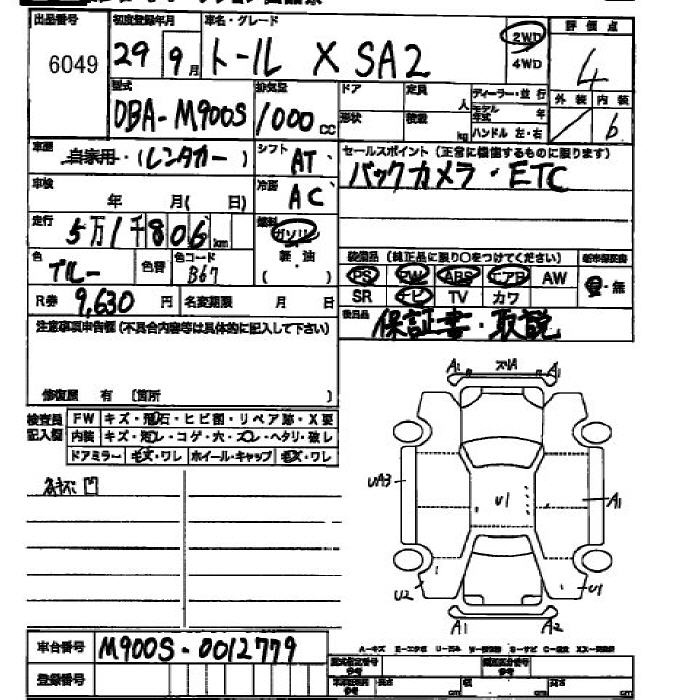 出品番号 初度登録年月 車名・グレード 評価点
6049 29 9月 トール X SA2 2WD 4WD 4
外装 内装
6
型式 排気量 ドア 定員 人 ディーラー・並行
DBA-M900S 1000cc 形状 積載 kg モデル年式 年
ハンドル 左・右
車歴 自家用・(レンタカー) シフト AT
セールスポイント (正常に機能するものに限ります)
バックカメラ・ETC
車検 年 月( 日) 冷房 AC
走行 5万1千806km 燃料 ガソリン 軽油 ( )
色 ブルー 色替 色コード B67
装備品 (純正品に限り○をつけてください) 新車保証書
PS PW ABS エアB AW 有・無
SR ナビ TV カワ
R券 9,630円 名変期限 月 日
後日品 保証書・取説
注意事項申告欄 (不具合内容等は具体的に記入して下さい)
修復歴 有 〔箇所 〕
検査員記入欄 FW キズ・飛石・ヒビ割・リペア跡・X要
内装 キズ・汚レ・コゲ・穴・スレ・ヘタリ・破レ
ドアミラー キズ・ワレ ホイール・キャップ キズ・ワレ
凹
A1 スリA A1
UA3 U1 A1
U2 U1
A1 A2
車台番号 M900S-0012779
登録番号